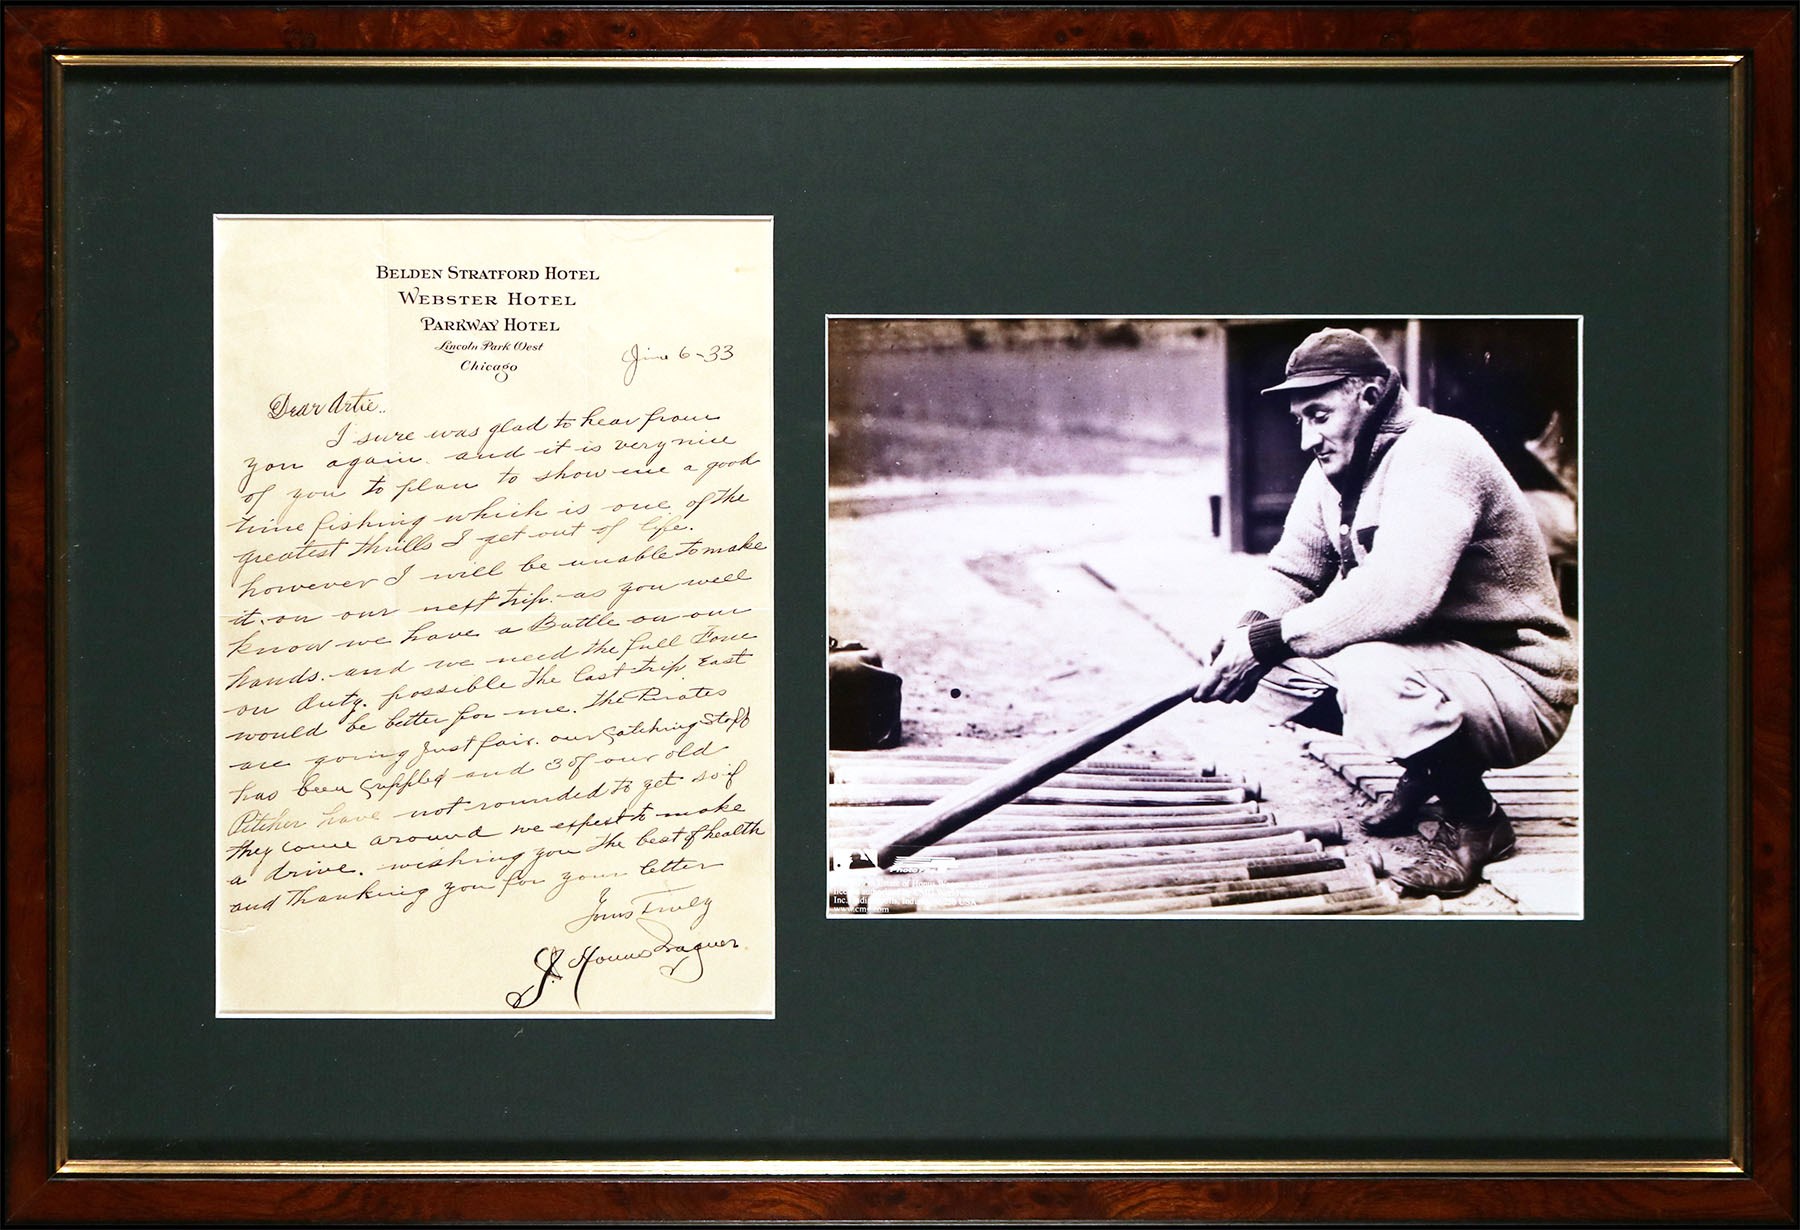 BELDEN STRATFORD HOTEL
WEBSTER HOTEL
PARKWAY HOTEL
Lincoln Park West
Chicago
June 6-33
Dear Artie..
I sure was glad to hear from
you again. and it is very nice
of you to plan to show me a good
time fishing which is one of the
greatest thrills I get out of life.
however I will be unable to make
it. on our next trip. as you well
know we have a Battle on our
hands. and we need the full Force
on duty. possible the last trip East
would be better for me. the Pirates
are going just fair. our Catching Staff
has been Crippled and 3 of our old
Pitcher have not rounded to yet so if
they come around we expect to make
a drive. wishing you the best of health
and thanking you for your letter
Yours Truly
J. Honus Wagner
Photo
Inc. Indiana USA
www.cmg.com